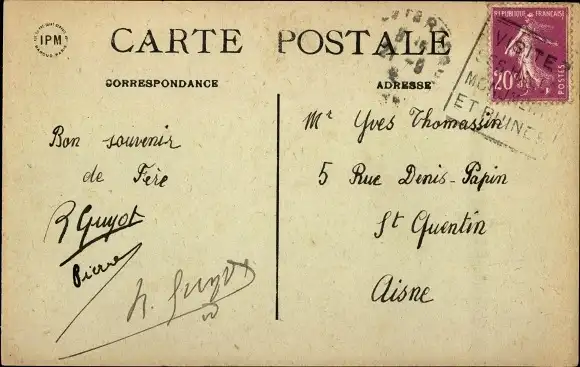 IPM
CARTE POSTALE
CORRESPONDANCE
ADRESSE
REPUBLIQUE FRANÇAISE
20c
POSTES
VISITEZ
ET RUINES
Bon souvenir
de Fère
R Guyot
Pierre
h. Guyot
Mr Yves Thomassin
5 Rue Denis-Papin
St Quentin
Aisne